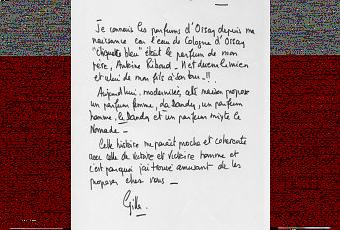 Je connais les parfums d'Orsay depuis ma
naissance car l'eau de Cologne d'Orsay
"Etiquette bleu" était le parfum de mon
père, Antoine Riboud - Il est devenu le mien
et celui de mon fils à son tour - !!
Aujourd'hui, modernisée, cette maison propose
un parfum femme, la Dandy, un parfum
homme, le Dandy et un parfum mixte le
Nomade -
Cette histoire me paraît proche et cohérente
avec celle de Victoire et Victoire homme et
c'est pourquoi j'ai trouvé amusant de les
proposer chez vous _
Gilles.